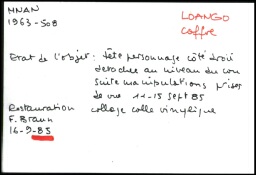 MNAN
1963-508
LOANGO
Coffre
Etat de l'objet : tête personnage côté droit
détachée au niveau du cou
suite manipulations prises
de vue 11-15 sept 85
Restauration collage colle vinylique
F. Braun
16-9-85